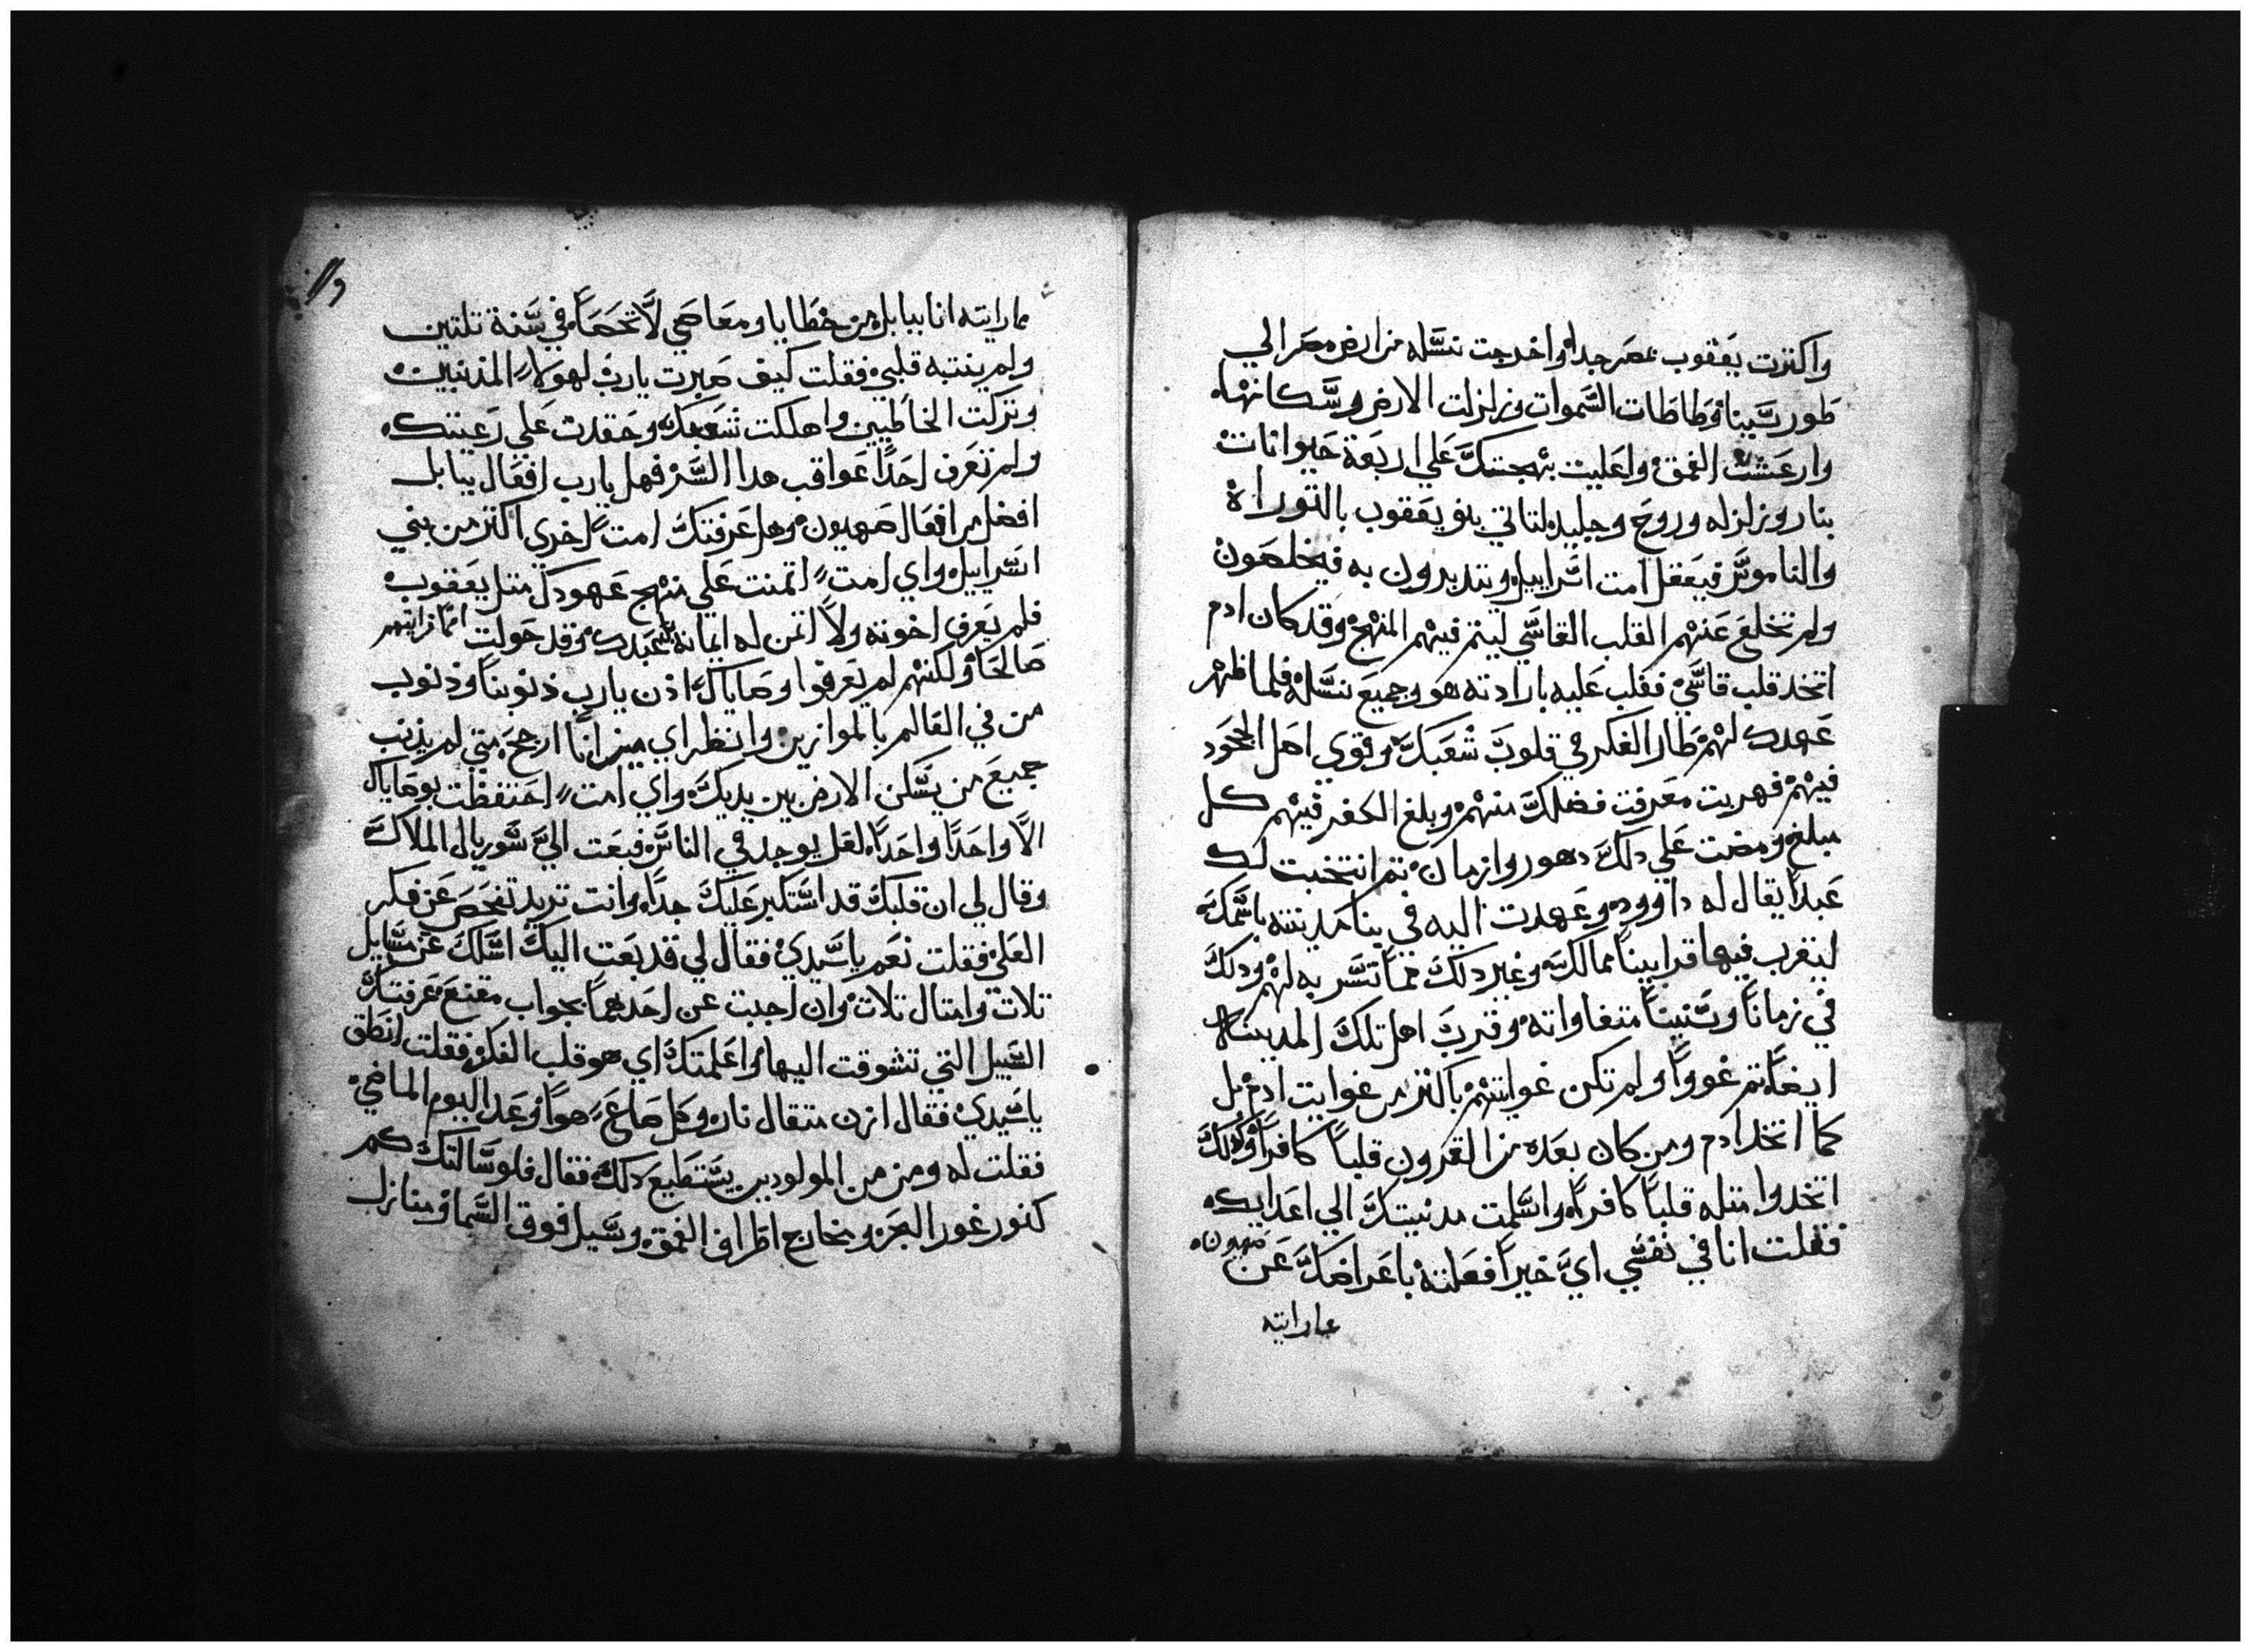 واكثرت يعقوب بمصر جدا واخرجت نسله من ارض مصر الي
طور سينا وطاطات السموات وزلزلت الارض وسكانها
وارعشت الغمق واعليت بهجتك علي اربعة حيوانات
بنار وزلزله وروح وجليد لتاتي بنو يعقوب بالتوراة
والناموس فيعقل امت اسراييل ويتدبرون به فيخلصون
ولم تخلع عنهم القلب القاسي ليتم فيهم المنهج وقد كان ادم
اتخد قلب قاسي فغلب عليه بارادته هو وجميع نسله فلما ظهر
عهدك لهم طار الفكر في قلوب شعبك وقوي اهل الجحود
فيهم فهربت معرفت فضلك منهم وبلغ الكفر فيهم كل
مبلغ ومضت علي دلك دهور وازمان تم انتخبت لك
عبدا يقال له داوود وعهدت اليه في بنا مدينته باسمك
ليقرب فيها قرابينا ممالك وغير دلك مما تسر به لهم ودلك
في زمانا وسنينا متفاوته وقرب اهل تلك المدينه
ايضا تم غووا ولم تكن غوايتهم باكتر من غوايت ادم بل
كما اتخد ادم ومن كان بعده من القرون قلبا كافرا وكدلك
اتخدوا متله قلبا كافرا واسلمت مدينتك الي اعدايك
فقلت انا في نفسي اي خيرا فعلته باعراضك عن صهيون
مارايته
مارايته انا ببابل من خطايا ومعاصي لا تحصا في سنة تلتين
ولم ينتبه قلبي فقلت كيف صبرت يارب لهولاء المذنبين
وتركت الخاطيين واهلكت شعبك وحقدت علي رعيتك
ولم تعرف احدا عواقب هدا السر فهل يارب افعال بابل
افضل من افعال صهيون وهل عرفتك امت اخري اكتر من بني
اسراييل واي امت اتمنت علي منهج عهودك متل يعقوب
فلم يعرف اخوته ولا اتمن له ايمانه عبدك وقد حولت امما رايتهم
صالحا ولكنهم لم يعرفوا وصاياك اذن يارب ذنوبنا وذنوب
من في العالم بالموازين وانظر اي ميزانا ارجح متي لم يذنب
جميع من يسكن الارض بين يديك واي امت احتفظت بوصاياك
الا واحدا واحدا لعل يوجد في الناس فبعت الي سوريال الملاك
وقال لي ان قلبك قد استكبر عليك جدا وانت تريد تفحص عن فكر
العلي فقلت نعم ياسيدي فقال لي قد بعت اليك اسلك عن مسايل
تلات وامتال تلات وان اجبت عن احدهما بجواب مقنع عرفتك
السبيل التي تشوقت اليها واعلمتك اي هو قلب الفكر فقلت انطق
ياسيدي فقال ازن متقال نار وكل صاع هوا وعد اليوم الماضي
فقلت له ومن من المولودين يستطيع دلك فقال فلو سالتك كم
كنور غور البحر ومخارج اطراف الغمق وسبيل فوق السما ومنازل